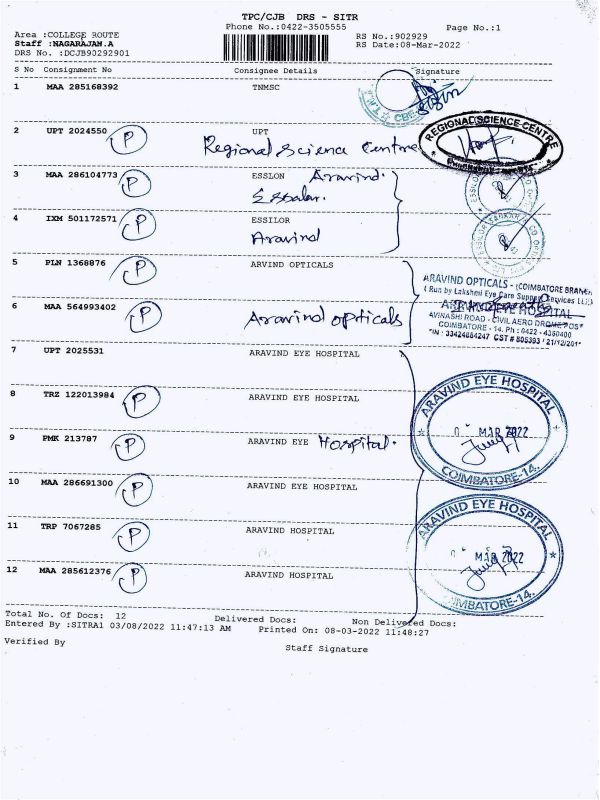 TPC/CJB DRS - SITR
Phone No.:0422-3505555
Page No.:1
Area :COLLEGE ROUTE
RS No.:902929
Staff :NAGARAJAN.A
RS Date:08-Mar-2022
DRS No. :DCJB90292901
S No Consignment No Consignee Details Signature
1 MAA 285168392 TNMSC
2 UPT 2024550 P UPT
Regional Science Centre
REGIONAL SCIENCE CENTRE
3 MAA 286104773 P ESSLON Aravind.
4 IXM 501172571 P ESSILOR
Aravind
5 PLN 1368876 P ARVIND OPTICALS
ARAVIND OPTICALS - (COIMBATORE BRANCH
( Run by Lakshmi Eye Care Support Services
6 MAA 564993402 P Aravind opticals
ARAVIND EYE HOSPITAL
AVINASHI ROAD - CIVIL AERO DROME POST
COIMBATORE - 14. Ph : 0422 - 4360400
CST # 805393 / 21/12/201
7 UPT 2025531 ARAVIND EYE HOSPITAL
8 TRZ 122013984 P ARAVIND EYE HOSPITAL
ARAVIND EYE HOSPITAL
MAR 2022
COIMBATORE-14.
9 PMK 213787 P ARAVIND EYE Hospital.
10 MAA 286691300 P ARAVIND EYE HOSPITAL
11 TRP 7067285 P ARAVIND HOSPITAL
ARAVIND EYE HOSPITAL
MAR 2022
COIMBATORE-14.
12 MAA 285612376 P ARAVIND HOSPITAL
Total No. Of Docs: 12 Delivered Docs: Non Delivered Docs:
Entered By :SITRA1 03/08/2022 11:47:13 AM Printed On: 08-03-2022 11:48:27
Verified By
Staff Signature